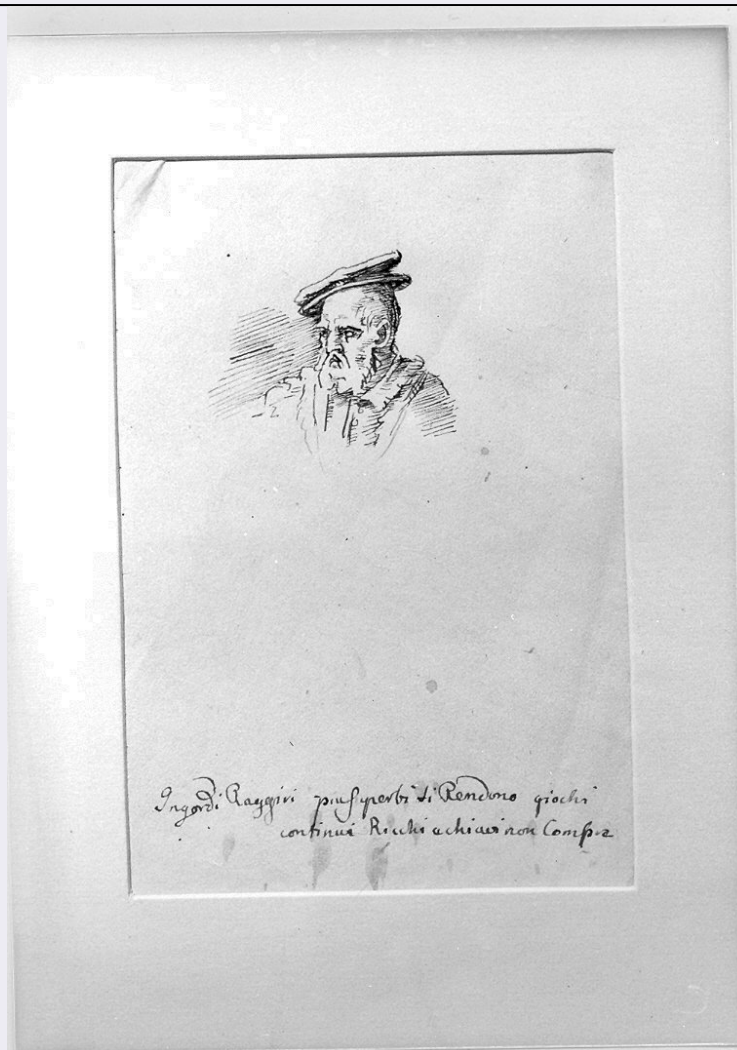 Ingordi Raggiri piu superbi si Rendono giochi
continui Ricchi a chi non Compra